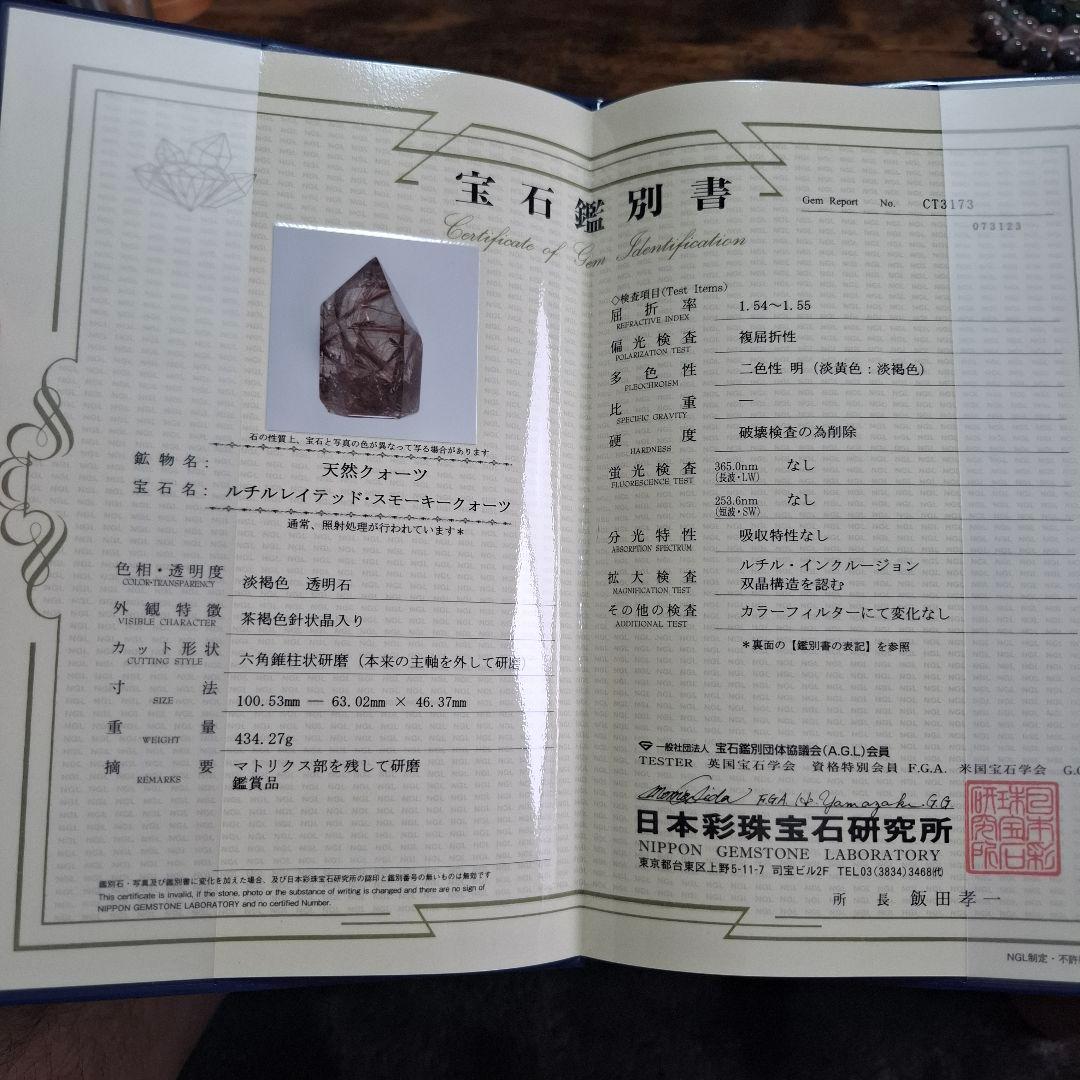 宝石鑑別書
Certificate of Gem Identification
Gem Report No. CT3173
073123
石の性質上、宝石と写真の色が異なって写る場合があります
鉱物名: 天然クォーツ
宝石名: ルチルレイテッド・スモーキークォーツ
通常、照射処理が行われています*
色相・透明度 淡褐色 透明石
COLOR・TRANSPARENCY
外観特徴 茶褐色針状晶入り
VISIBLE CHARACTER
カット形状 六角錐柱状研磨(本来の主軸を外して研磨)
CUTTING STYLE
寸法 100.53mm — 63.02mm × 46.37mm
SIZE
重量 434.27g
WEIGHT
摘要 マトリクス部を残して研磨
REMARKS 鑑賞品
鑑別石・写真及び鑑別書に変化を加えた場合、及び日本彩珠宝石研究所の鋼印と鑑別番号の無いものは無効です
This certificate is invalid, if the stone, photo or the substance of writing is changed and there are no sign of
NIPPON GEMSTONE LABORATORY and no certified Number.
◇検査項目(Test Items)
屈折率 1.54〜1.55
REFRACTIVE INDEX
偏光検査 複屈折性
POLARIZATION TEST
多色性 二色性 明(淡黄色:淡褐色)
PLEOCHROISM
比重 —
SPECIFIC GRAVITY
硬度 破壊検査の為削除
HARDNESS
蛍光検査 365.0nm なし
FLUORESCENCE TEST (長波・LW)
253.6nm なし
(短波・SW)
分光特性 吸収特性なし
ABSORPTION SPECTRUM
拡大検査 ルチル・インクルージョン
MAGNIFICATION TEST 双晶構造を認む
その他の検査 カラーフィルターにて変化なし
ADDITIONAL TEST
*裏面の【鑑別書の表記】を参照
一般社団法人 宝石鑑別団体協議会(A.G.L)会員
TESTER 英国宝石学会 資格特別会員 F.G.A. 米国宝石学会 G.G
F.G.A. Yamazaki G.G
日本彩珠宝石研究所
NIPPON GEMSTONE LABORATORY
東京都台東区上野5-11-7 司宝ビル2F TEL03(3834)3468㈹
所長 飯田孝一
日本彩珠宝石研究所
NGL制定・不許